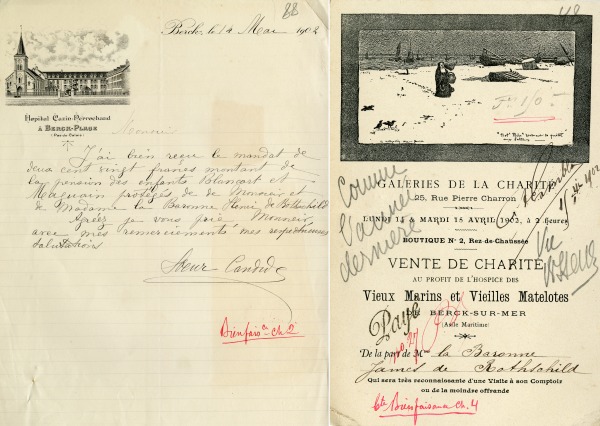 88
Berck, le 14 Mai 1902
Hôpital Cazin-Perrochaud
À BERCK-PLAGE
(Pas de Calais)
Monsieur
J'ai bien reçu le mandat de
deux cent vingt francs montant de
la pension des enfants Blançart et
Maguain protégés de de Monsieur et
de Madame la Baronne Henri de Rothschild
Agréez je vous prie Monsieur,
avec mes remerciements mes respectueuses
salutations
Soeur Candide
Bienfaisce ch. 2
48
Fs 1/0
GALERIES DE LA CHARITÉ
25, Rue Pierre Charron
LUNDI 14 & MARDI 15 AVRIL 1902, à 2 heures
BOUTIQUE N° 2, Rez-de-Chaussée
Comme
l'année
dernière
VENTE DE CHARITÉ
AU PROFIT DE L'HOSPICE DES
Vieux Marins et Vieilles Matelotes
DE BERCK-SUR-MER
(Asile Maritime)
Payé
De la part de Mme la Baronne
James de Rothschild
Qui sera très reconnaissante d'une Visite à son Comptoir
ou de la moindre offrande
Cte Bienfaisance Ch. 4